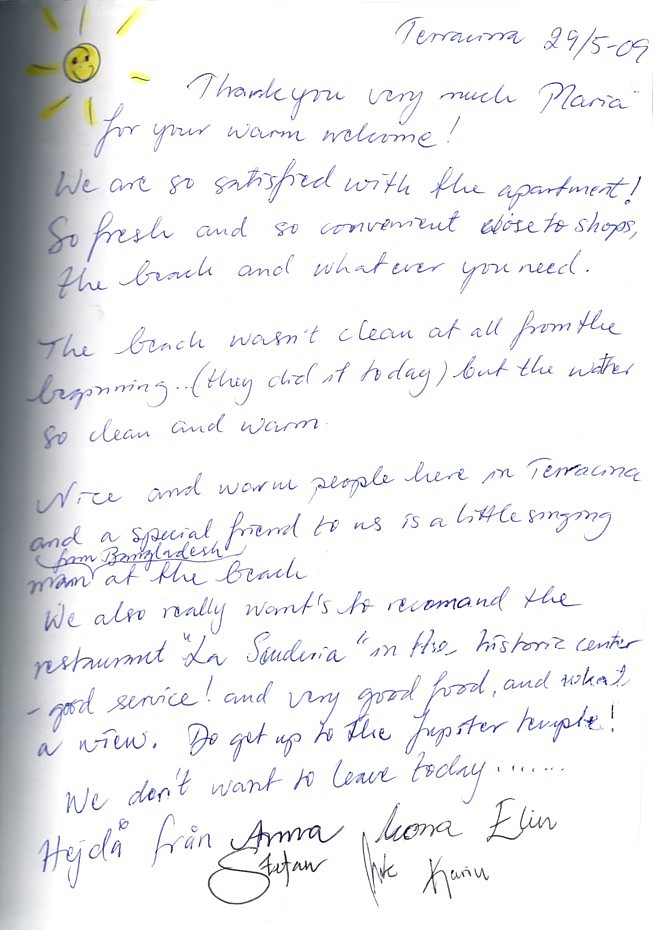 Terracina 29/5-09
Thank you very much Maria
for your warm welcome!
We are so satisfied with the apartment!
So fresh and so convenient close to shops,
the beach and whatever you need.
The beach wasn't clean at all from the
beginning..(they did it today) but the water
so clean and warm.
Nice and warm people here in Terracina
and a special friend to us is a little singing
from Bangladesh
man at the beach
We also really want's to recomand the
restaurant "La Scuderia" in the historic center
- good service! and very good food, and what
a view. Do get up to the Jupiter temple!
We don't want to leave today.......
Hejdå från Anna Elin
Stefan Karin